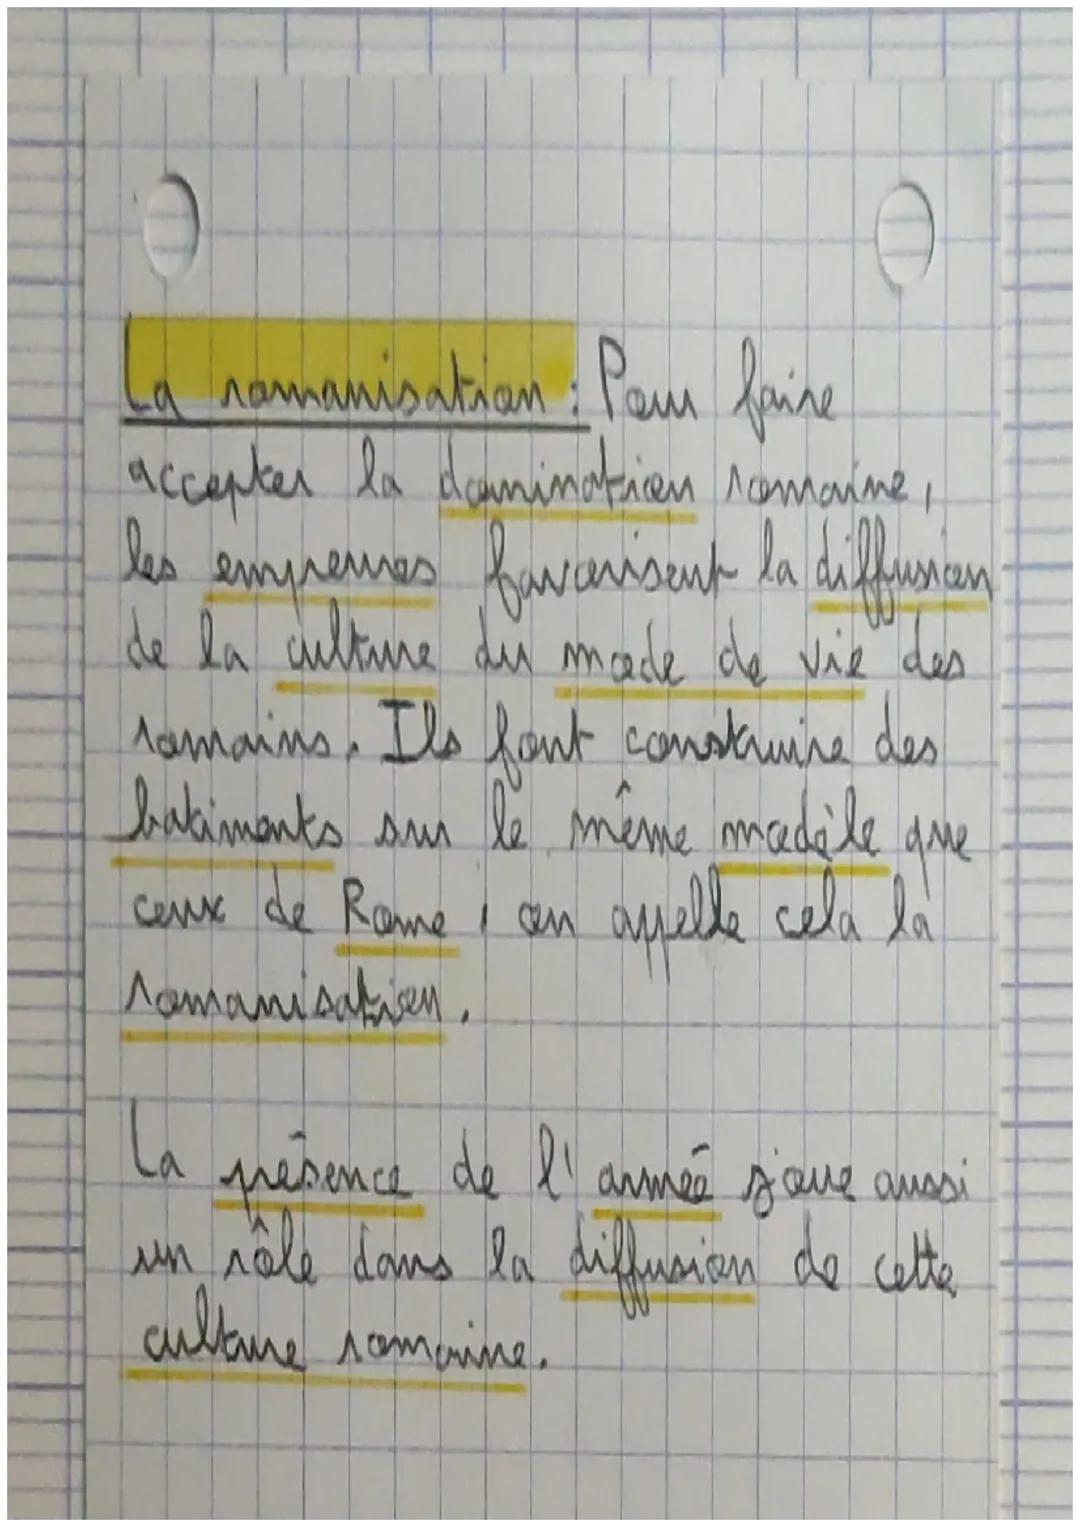 La romanisation : Pour faire
accepter la domination romaine,
les empereurs favorisent la diffusion
de la culture du mode de vie des
romains. Ils font construire des
batiments sur le même modèle que
ceux de Rome, on appelle cela la
romanisation.
La présence de l'armée joue aussi
un rôle dans la diffusion de cette
culture romaine.